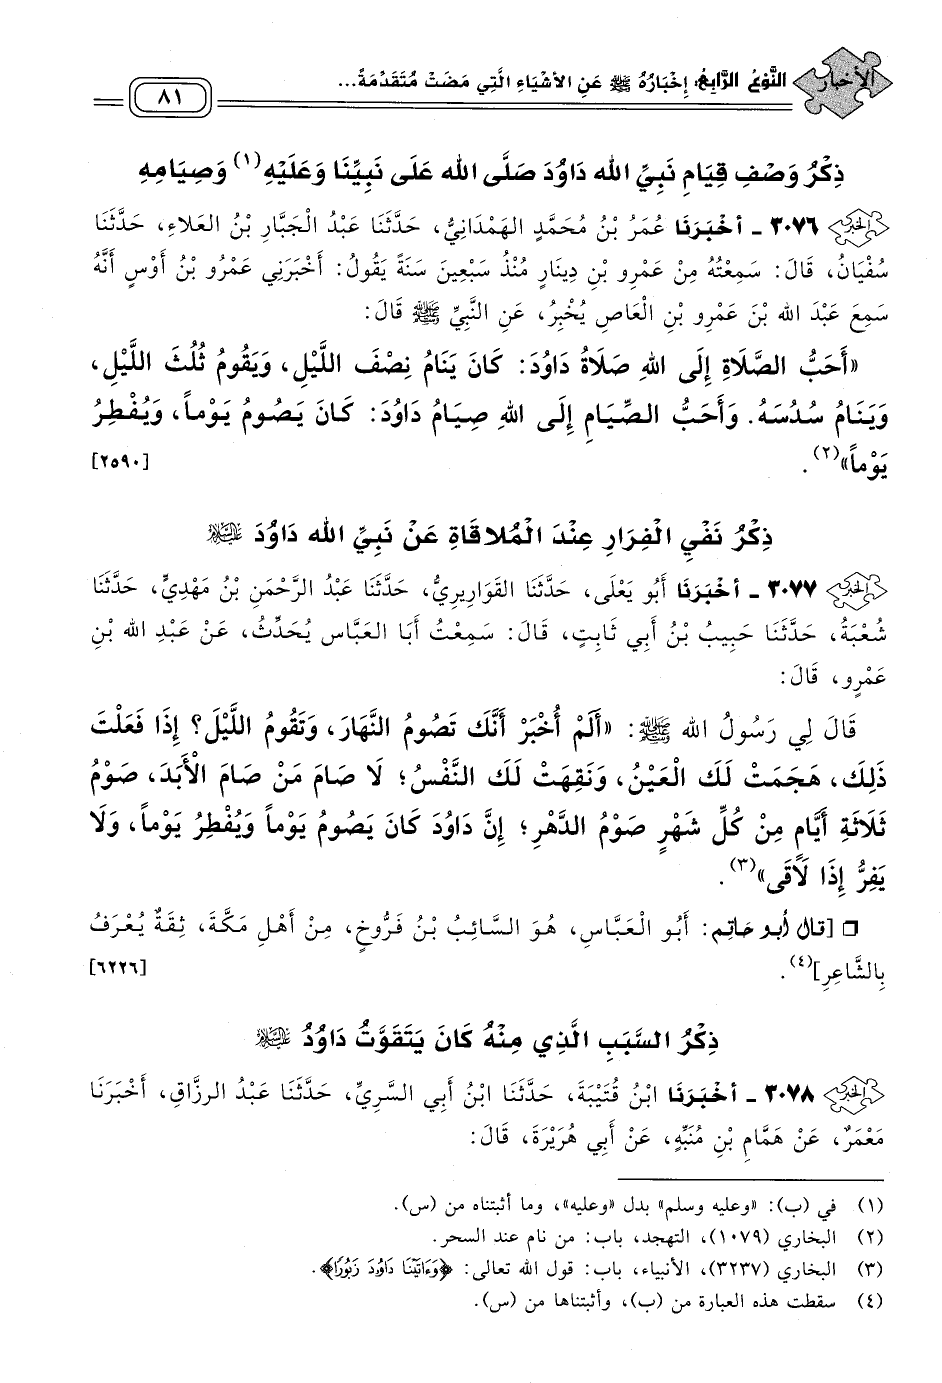 الأخبار
النَّوْعُ الرَّابِعُ: إِخْبَارُهُ ﷺ عَنِ الأَشْيَاءِ الَّتِي مَضَتْ مُتَقَدِّمَةً...
٨١
ذِكْرُ وَصْفِ قِيَامِ نَبِيِّ الله دَاوُدَ صَلَّى الله عَلَى نَبِيِّنَا وَعَلَيْهِ(١) وَصِيَامِهِ
٣٠٧٦ - أخْبَرَنَا عُمَرُ بْنُ مُحَمَّدٍ الهَمْدَانِيُّ، حَدَّثَنَا عَبْدُ الْجَبَّارِ بْنُ العَلاءِ، حَدَّثَنَا
سُفْيَانُ، قَالَ: سَمِعْتُهُ مِنْ عَمْرِو بْنِ دِينَارٍ مُنْذُ سَبْعِينَ سَنَةً يَقُولُ: أَخْبَرَنِي عَمْرُو بْنُ أَوْسٍ أَنَّهُ
سَمِعَ عَبْدَ الله بْنَ عَمْرِو بْنِ الْعَاصِ يُخْبِرُ، عَنِ النَّبِيِّ ﷺ قَالَ:
«أَحَبُّ الصَّلَاةِ إِلَى اللهِ صَلَاةُ دَاوُدَ: كَانَ يَنَامُ نِصْفَ اللَّيْلِ، وَيَقُومُ ثُلُثَ اللَّيْلِ،
وَيَنَامُ سُدُسَهُ. وَأَحَبُّ الصِّيَامِ إِلَى اللهِ صِيَامُ دَاوُدَ: كَانَ يَصُومُ يَوْماً، وَيُفْطِرُ
يَوْماً»(٢). [٢٥٩٠]
ذِكْرُ نَفْيِ الْفِرَارِ عِنْدَ الْمُلاقَاةِ عَنْ نَبِيِّ الله دَاوُدَ عليه السلام
٣٠٧٧ - أخْبَرَنَا أَبُو يَعْلَى، حَدَّثَنَا القَوَارِيرِيُّ، حَدَّثَنَا عَبْدُ الرَّحْمَنِ بْنُ مَهْدِيٍّ، حَدَّثَنَا
شُعْبَةُ، حَدَّثَنَا حَبِيبُ بْنُ أَبِي ثَابِتٍ، قَالَ: سَمِعْتُ أَبَا العَبَّاسِ يُحَدِّثُ، عَنْ عَبْدِ الله بْنِ
عَمْرٍو، قَالَ:
قَالَ لِي رَسُولُ الله ﷺ: «أَلَمْ أُخْبَرْ أَنَّكَ تَصُومُ النَّهَارَ، وَتَقُومُ اللَّيْلَ؟ إِذَا فَعَلْتَ
ذَلِكَ، هَجَمَتْ لَكَ الْعَيْنُ، وَنَقِهَتْ لَكَ النَّفْسُ؛ لَا صَامَ مَنْ صَامَ الأَبَدَ، صَوْمُ
ثَلَاثَةِ أَيَّامٍ مِنْ كُلِّ شَهْرٍ صَوْمُ الدَّهْرِ؛ إِنَّ دَاوُدَ كَانَ يَصُومُ يَوْماً وَيُفْطِرُ يَوْماً، وَلَا
يَفِرُّ إِذَا لَاقَى»(٣).
❒ [قال أبو حاتم: أَبُو الْعَبَّاسِ، هُوَ السَّائِبُ بْنُ فَرُّوخٍ، مِنْ أَهْلِ مَكَّةَ، ثِقَةٌ يُعْرَفُ
بِالشَّاعِرِ](٤). [٦٢٢٦]
ذِكْرُ السَّبَبِ الَّذِي مِنْهُ كَانَ يَتَقَوَّتُ دَاوُدُ عليه السلام
٣٠٧٨ - أخْبَرَنَا ابْنُ قُتَيْبَةَ، حَدَّثَنَا ابْنُ أَبِي السَّرِيِّ، حَدَّثَنَا عَبْدُ الرزَّاقِ، أَخْبَرَنَا
مَعْمَرٌ، عَنْ هَمَّامِ بْنِ مُنَبِّهٍ، عَنْ أَبِي هُرَيْرَةَ، قَالَ:
(١) في (ب): «وعليه وسلم» بدل «وعليه»، وما أثبتناه من (س).
(٢) البخاري (١٠٧٩)، التهجد، باب: من نام عند السحر.
(٣) البخاري (٣٢٣٧)، الأنبياء، باب: قول الله تعالى: ﴿وَءَاتَيْنَا دَاوُدَ زَبُورًا﴾.
(٤) سقطت هذه العبارة من (ب)، وأثبتناها من (س).